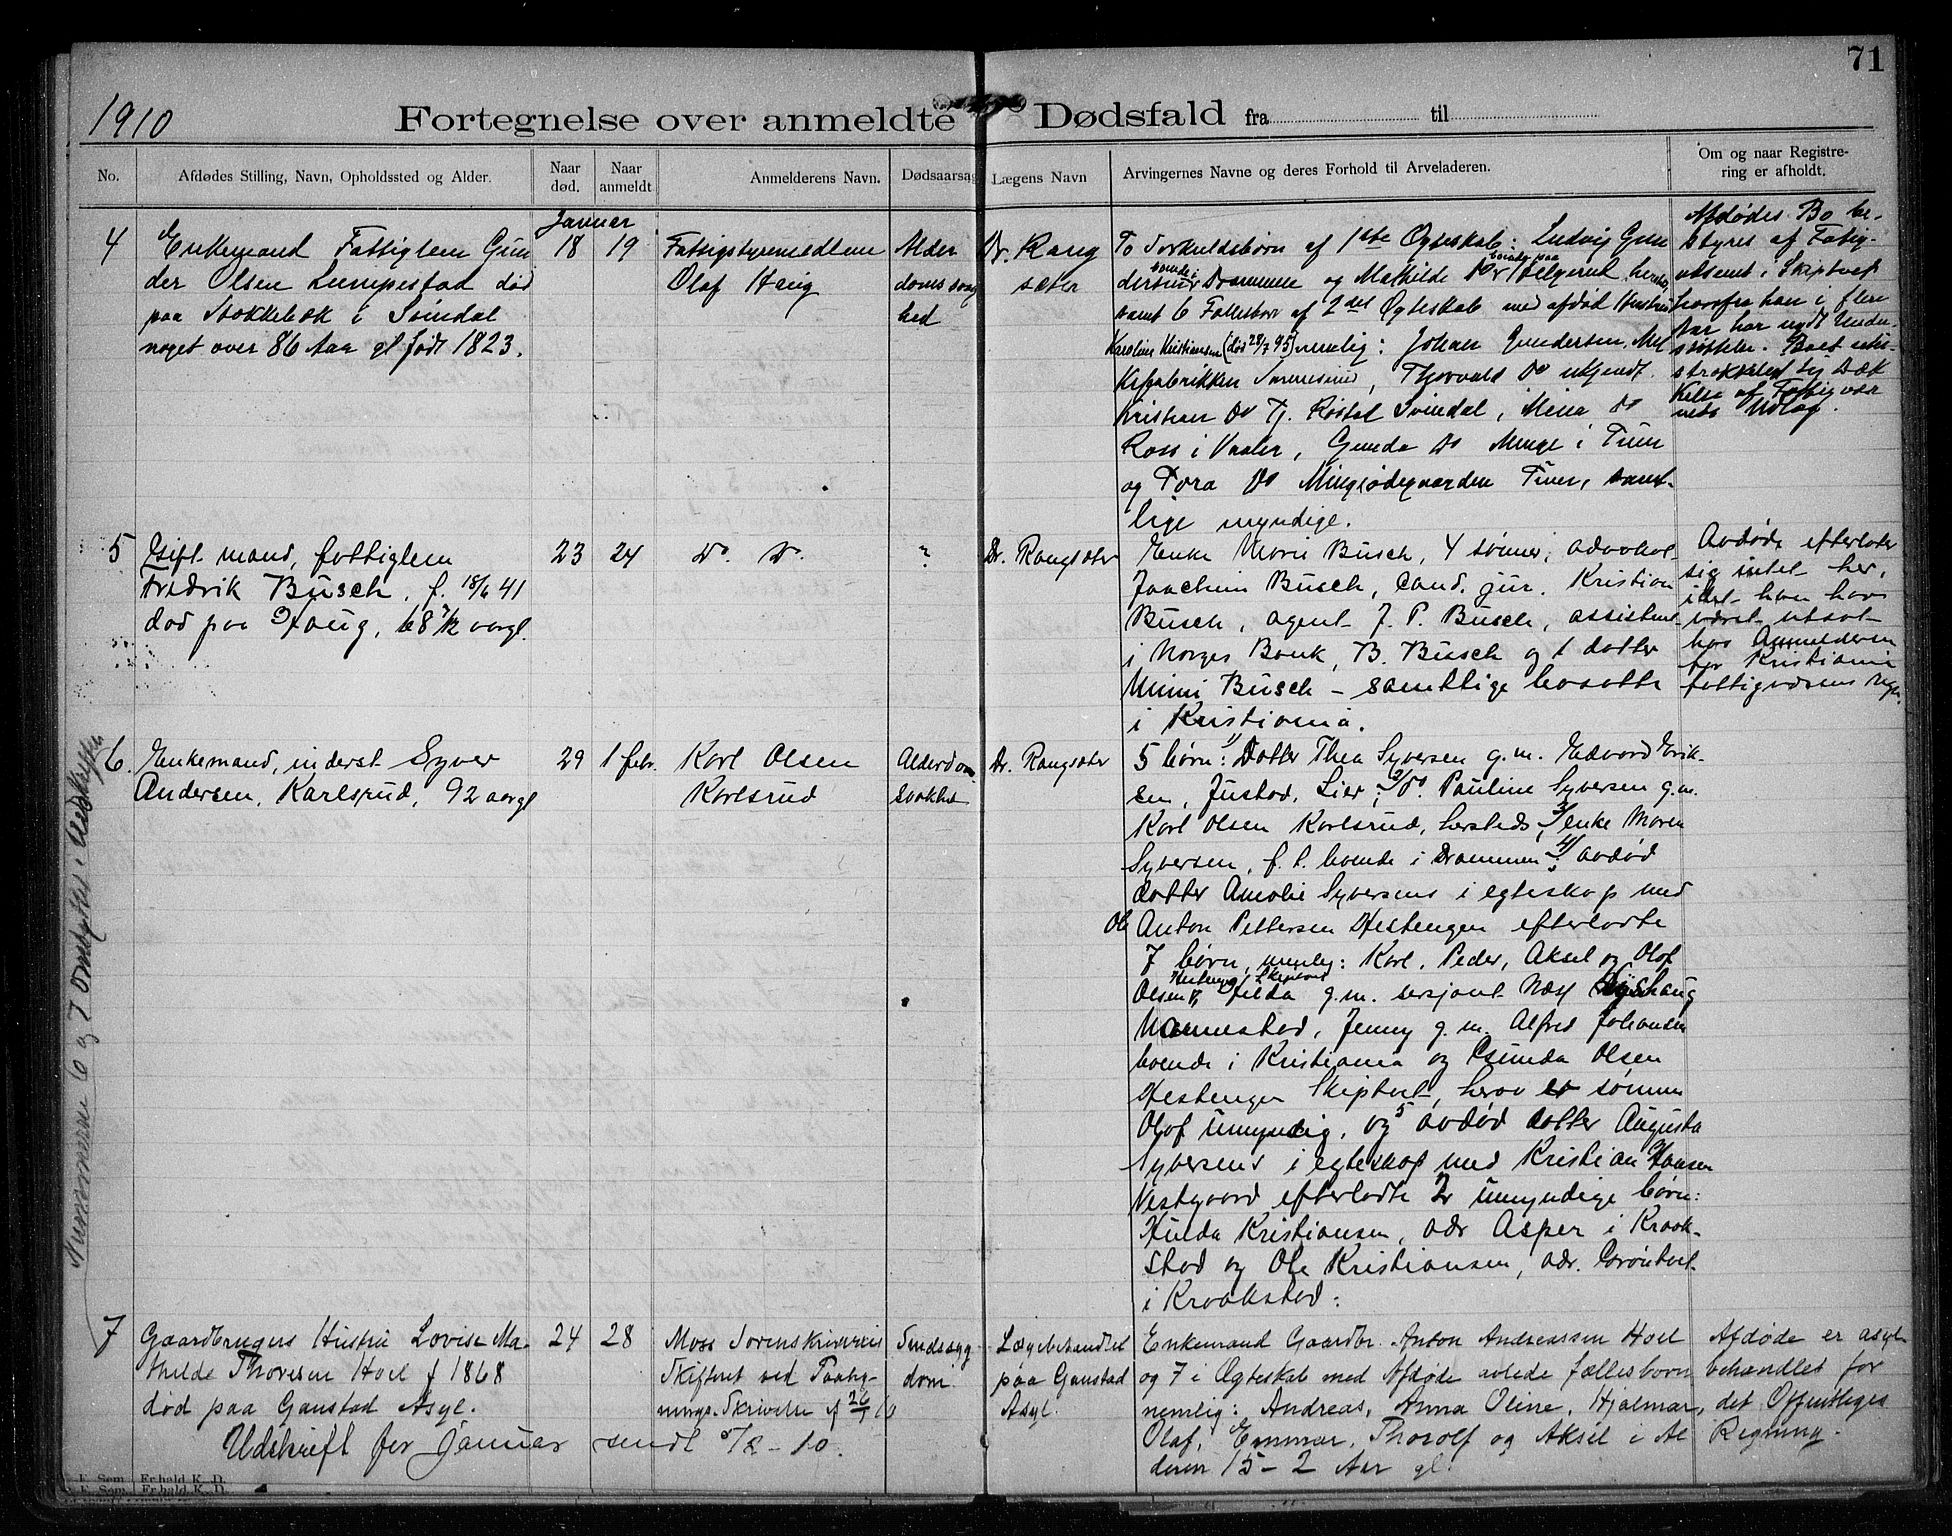 71
1910
Fortegnelse over anmeldte Dødsfald fra til
No.
Afdødes Stilling, Navn, Opholdssted og Alder.
Naar død.
Naar anmeldt.
Anmelderens Navn.
Dødsaarsag
Lægens Navn
Arvingernes Navne og deres Forhold til Arveladeren.
Om og naar Registrering er afholdt.
Januar
4
Enkemand Fattiglem Gun
der Olsen Lumpestad død
paa Stokkebæk i Svindal
noget over 86 Aar gl født 1823.
18
19
Fattigstyremedlem
Olaf Haug
Alder
doms svag
hed
Dr. Rang
sæter
To Særkuldsbørn af 1ste Ægteskab: Ludvig Gun
dersen boende i Drammen og Mathilde Do boende paa Helgerud her
samt 6 Fællesbørn af 2det Ægteskab med afdød Hustru
Karoline Kristiansen (død 28/7 95) nemlig: Johan Gundersen, Mel
kefabrikken, Thorvald Do ukjendt
Kristian Do Tj. Røstad Svindal, Mina Do
Ross i Vaaler, Gunda Do Minge i Tune
og Tora Do Mingeødegaarden Tune, samt-
lige myndige.
Afdødes Bo be-
styres af Fatig-
væsenet i Skiptvet
hvorfra han i flere
Aar har nydt Under-
støttelse. Boet
strækkelig til Dæk
kelse af Fattigvæs
nets Udlæg.
5
Gift mand, fattiglem
Fredrik Busch, f. 18/6 41
død paa Haug, 68 1/2 aargl.
23
24
Do Do
?
Dr. Rangsæter
Enke Marie Busch, 4 sønner, advokat
Joachim Busch, cand. jur. Kristian
Busch, agent J. P. Busch, assistent
i Norges Bank, B. Busch og 1 datter
Mimi Busch – samtlige bosatte
i Kristiania.
Avdøde efterlater
sig intet her,
idet han har
været utsat
hos Anmelderen
for Kristiania
fattigvæsens regn.
6.
Enkemand, inderst Syver
Andersen, Karlsrud, 92 aargl
29
1 febr.
Karl Olsen
Karlsrud
Alderdom
svakhed
Dr. Rangsæter
5 børn: 1/ Datter Thea Syversen g.m. Edvard Erik-
sen, Justad, Lier; 2/ Do. Pauline Syversen g.m.
Karl Olsen Karlsrud, hersteds, 3/ enke Maren
Syversen, f. t. boende i Drammen, 4/ avdød
datter Amalie Syversens i egteskap med
Ole Anton Pettersen Hestengen efterladte
7 børn, nemlig: Karl, Peder, Aksel og Olaf
Olsen Hestengen Skiptvet, Hilda g.m. sersjant Næss Nyshaug
Vannestad, Jenny g.m. Alfred Johansen
boende i Kristiania og Gunda Olsen
Hestengen Skiptvet, herav er sønnen
Olaf umyndig, og 5 avdød datter Augusta
Syversens i egteskap med Kristian Hansen
Vestgaard efterladte 2 umyndige børn:
Hulda Kristiansen, adr Asper i Kraak-
stad og Ole Kristiansen, adr. Grøntvet
i Kraakstad:
Numrene 6 og 7 ombyttet i Utskriften
7
Gaardbrugers Hustru Lovise Ma-
thilde Thoresen Hoel f 1868
død paa Gaustad Asyl.
24
28
Moss Sorenskriveri
Skifteret ved Taabyg-
nings-Skrivelse af 26/1 10
Sindssyg
dom.
Lægebehandlet
paa Gaustad
Asyl.
Enkemand Gaardbr. Anton Andreassen Hoel
og 7 i Ægteskab med Afdøde avlede fællesbørn
nemlig: Andreas, Anna Oline, Hjalmar,
Olaf, Emmar, Thorolf og Aksel i Al
deren 15–2 Aar gl.
Afdøde er asyl
behandlet for
det Offentliges
Regning.
Udskrift for Januar sendt 5/2–10.
E. Sem. Fr.hald. K. D.